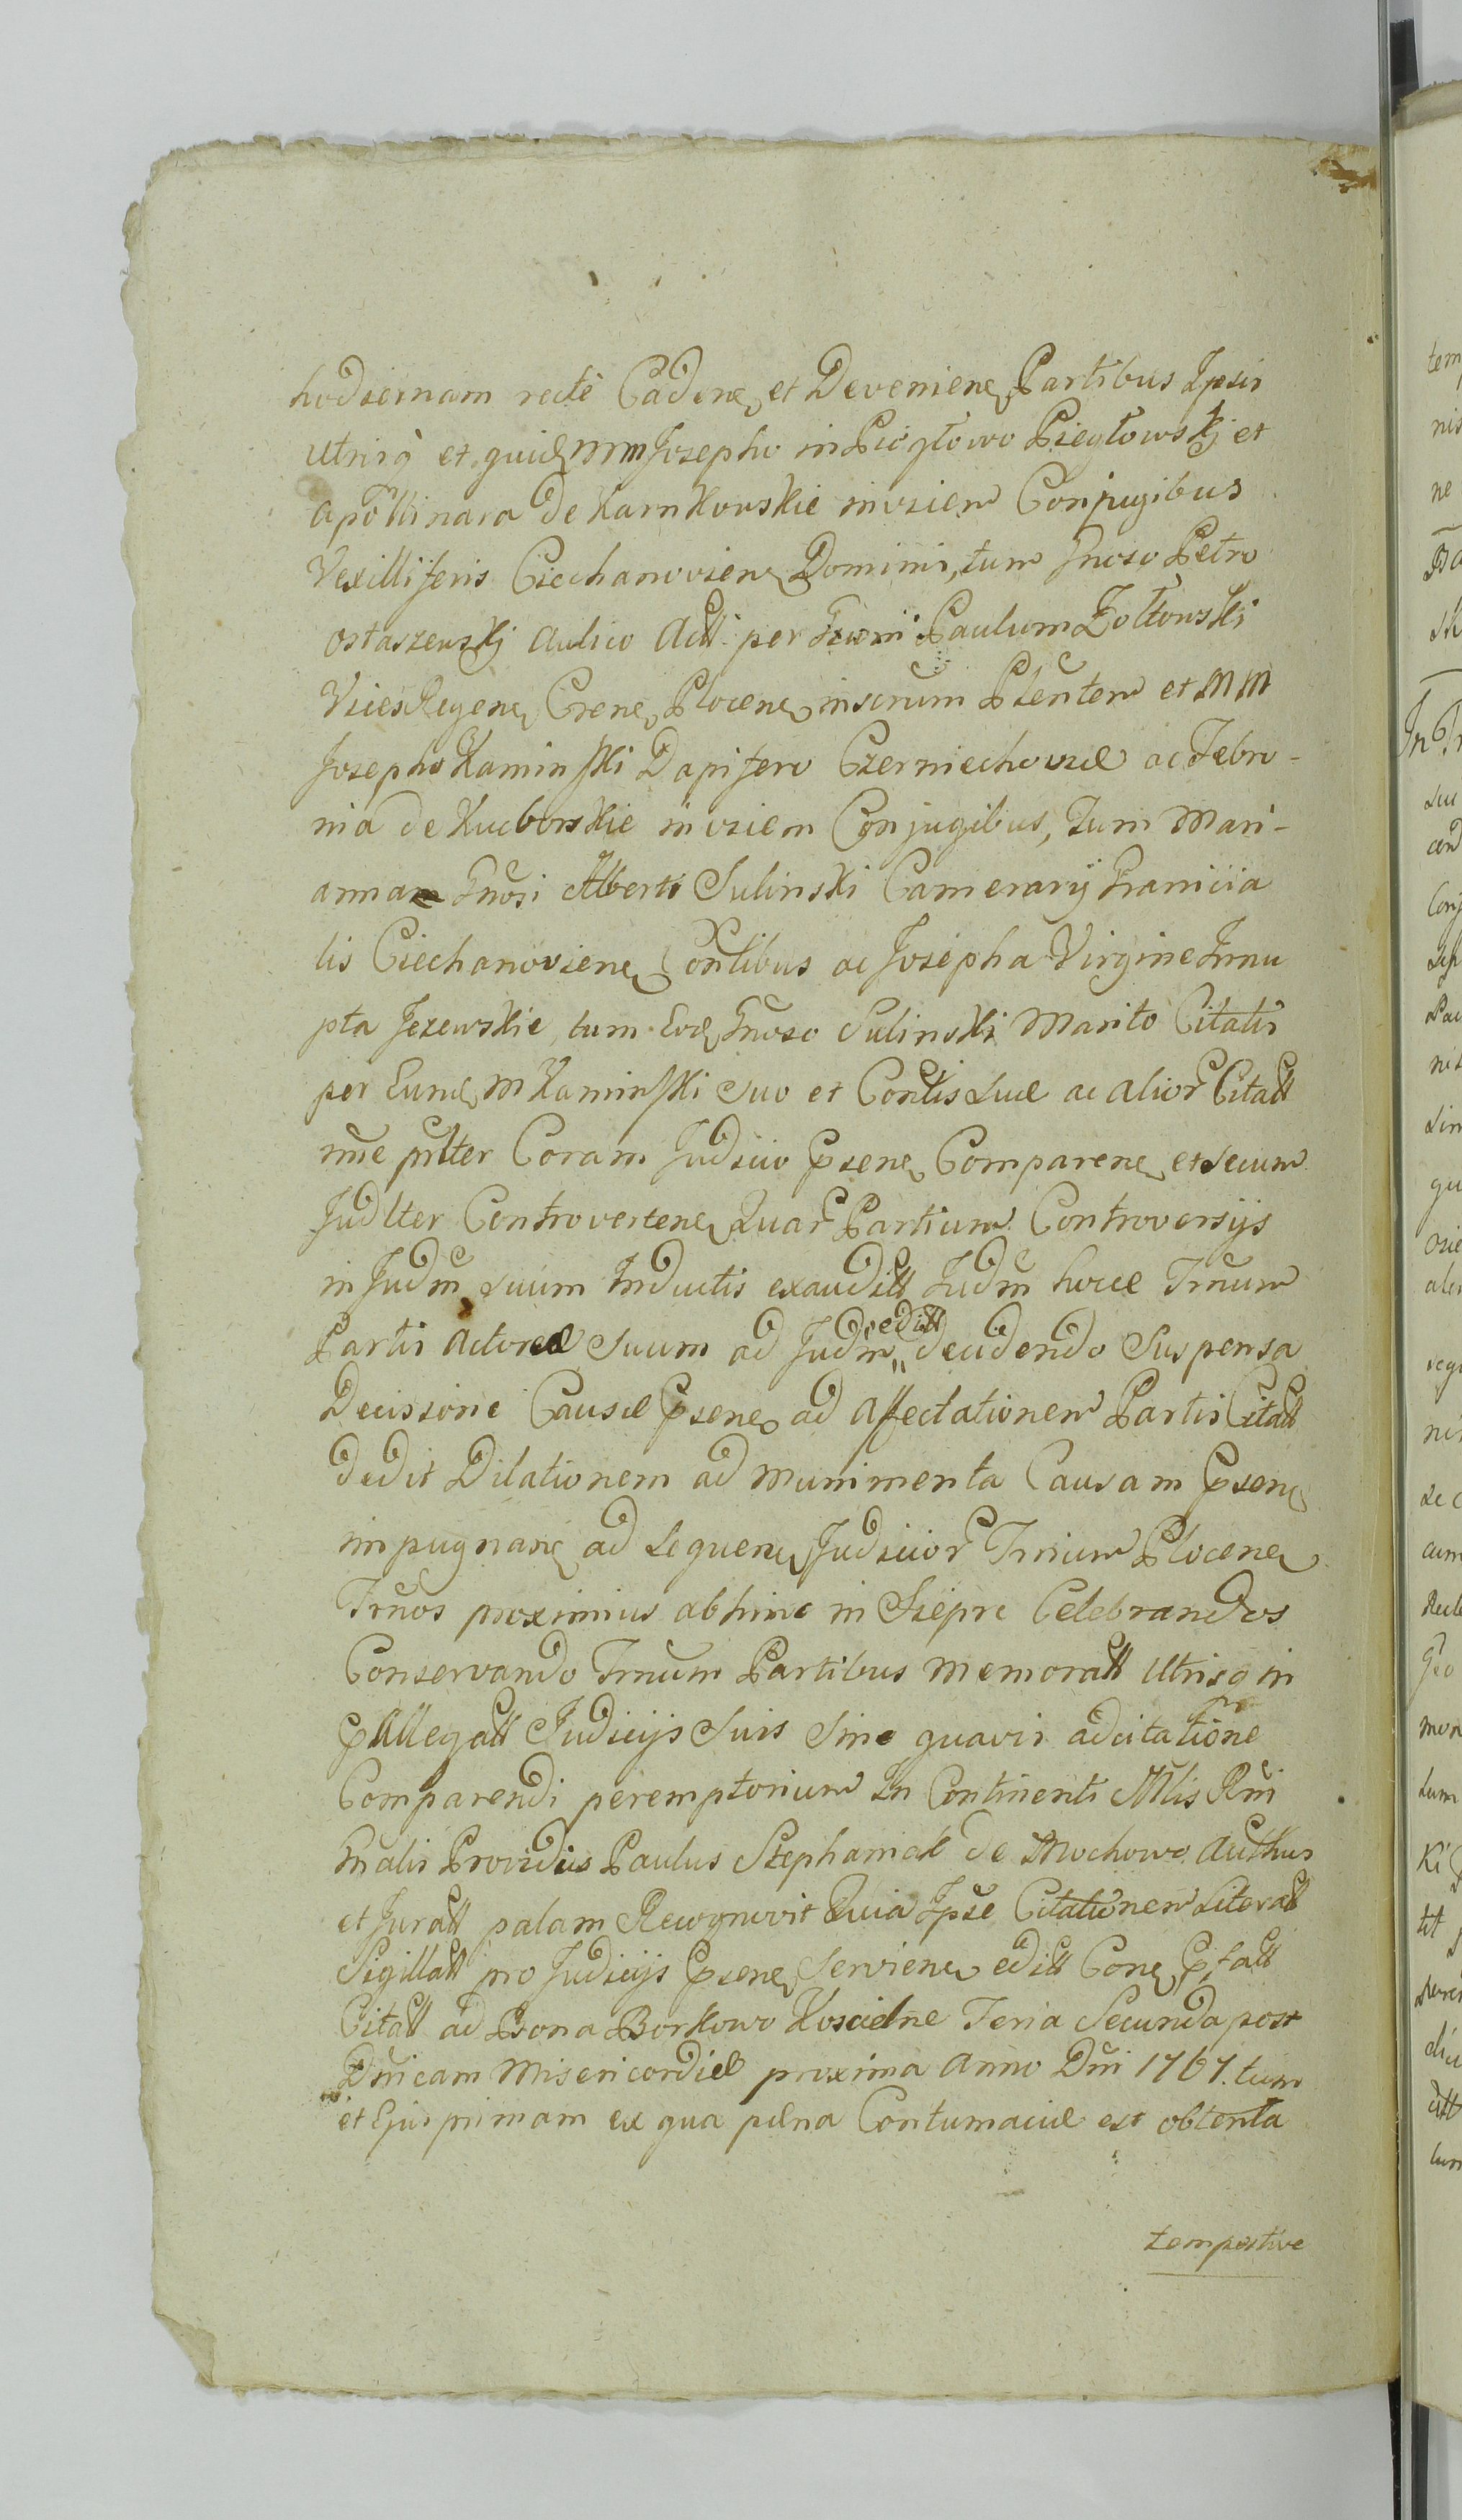 hodiernam recte Caden, et Devenien, Partibus Ipsis
utrisq̀ et, quid, MM Josepho in Piegłowo Piegłowskj et
Apollinara de Karnkowskie invicem Conjugibus
Vexilliferis Ciechanovien, Dominis, tum Gnoso Petro
Ostaszewskj Aulico Actt: per Gnosu Paulum Zołtowski
Vices Regen, Cren, Plocen, inscrum Plentem et MM
Josepho Kaminski Dapifero Czerniechoviæ ac Febro-
nia de Kueborskie invicem Conjugibus, tum Mari-
anna Gnosi Alberti Sulinski Camerarÿ Granicia
lis Ciechanovien, Contibus ac Josepha Virgine Innu
pta Jezewskie, tum Eod, Gnoso Sulinski Marito Citatis
per Eund, M Kaminski suo et Contis suæ ac alior Citatt
nue pnlter Coram Judicio Psene, Comparen, et secum
Judlter Controverten, Quar Partium Controversÿs
in Judm suum Inductis exauditt Judm hocce Trnum
Partis Actoreæ suum ad Judm " editt decidendo Suspensa
Decissione Causæ Psene, ad Affectationem Partis Citatt
dedit Dilationem ad Munimenta Causam Psen,
impugnan, ad sequen, Judicior Trnum Plocen,
Trnos proximius abhinc in Sieprc Celebrandos
Conservando Trnum Partibus memoratt Utrisq in
Pallegatt Judicÿs Suis Sine quavis adcitatione
Comparendi peremptorium In Continenti Mtis Rni
Gnalis Providus Paulus Stephaniak de Mochowo Autthus
et Juratt palam Recognovit Quia Ipse Citationem Literatt
Sigillatt pro Judicÿs Psen, Servien, editt Con, Pfatt
Citatt ad Bona Borkowo Koscielne Feria Secunda post
Dnicam Misericordiæ proxima Anno Dni 1767. tum
et Ejus primam ex qua pœna Contumaciæ est obtenta
tempestive